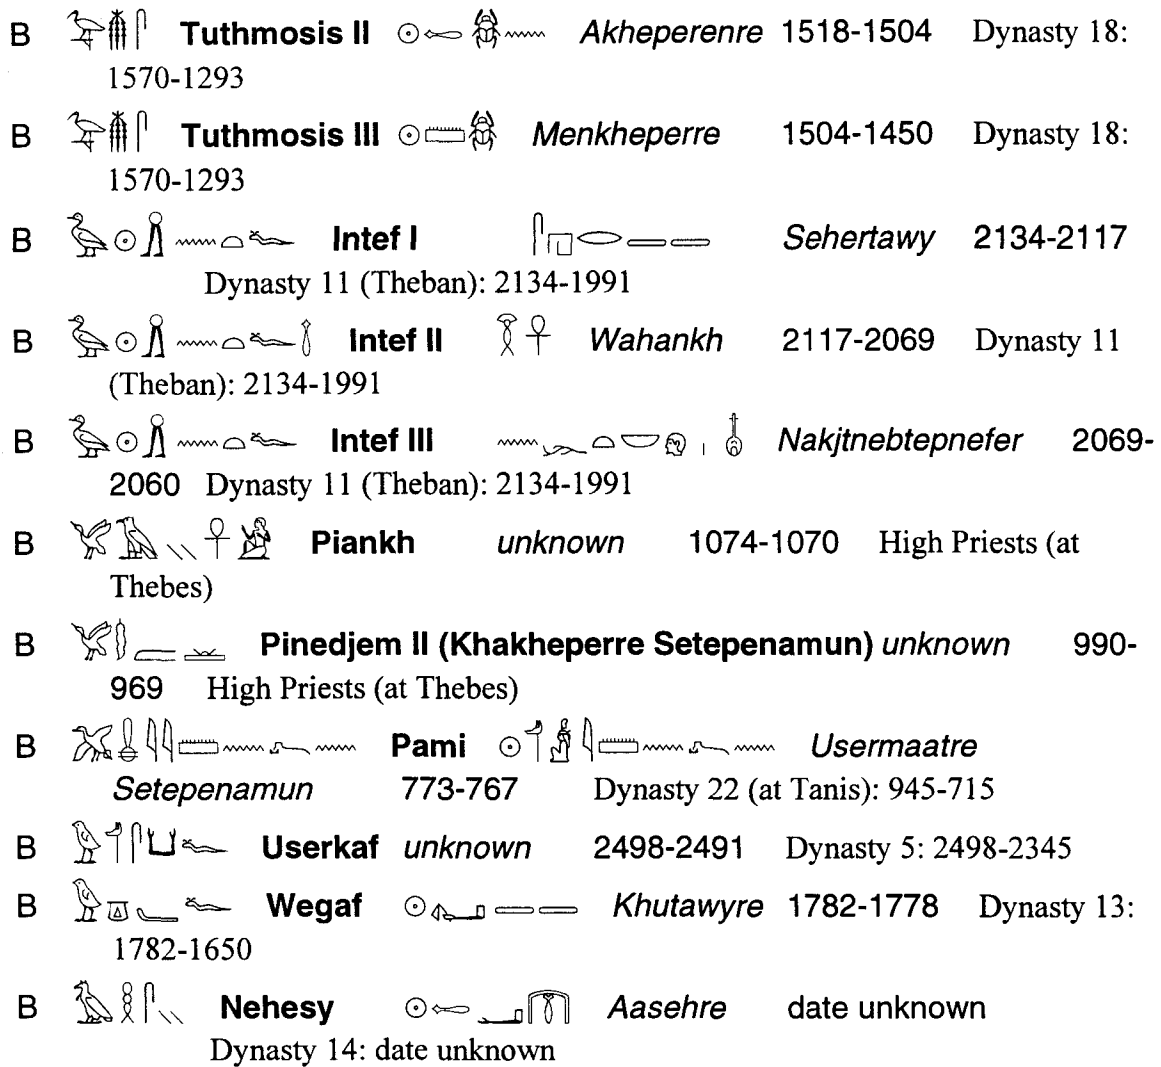 B Tuthmosis II Akheperenre 1518-1504 Dynasty 18:
1570-1293
B Tuthmosis III Menkheperre 1504-1450 Dynasty 18:
1570-1293
B Intef I Sehertawy 2134-2117
Dynasty 11 (Theban): 2134-1991
B Intef II Wahankh 2117-2069 Dynasty 11
(Theban): 2134-1991
B Intef III Nakjtnebtepnefer 2069-
2060 Dynasty 11 (Theban): 2134-1991
B Piankh unknown 1074-1070 High Priests (at
Thebes)
B Pinedjem II (Khakheperre Setepenamun) unknown 990-
969 High Priests (at Thebes)
B Pami Usermaatre
Setepenamun 773-767 Dynasty 22 (at Tanis): 945-715
B Userkaf unknown 2498-2491 Dynasty 5: 2498-2345
B Wegaf Khutawyre 1782-1778 Dynasty 13:
1782-1650
B Nehesy Aasehre date unknown
Dynasty 14: date unknown